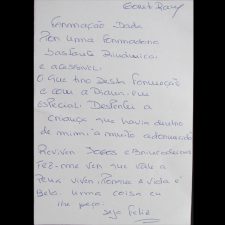 Formação Dada
Por uma Formadora
bastante Dinâmica
e acessível
O que tiro desta Formação
e com a Diana em
especial: Despertou a
criança que havia dentro
de mim à muito adormecida
Reviver Jogos e Brincadeiras
Fez-me ver que vale a
Pena viver. Porque a vida é
Bela uma coisa eu
lhe peço.
Seja Feliz